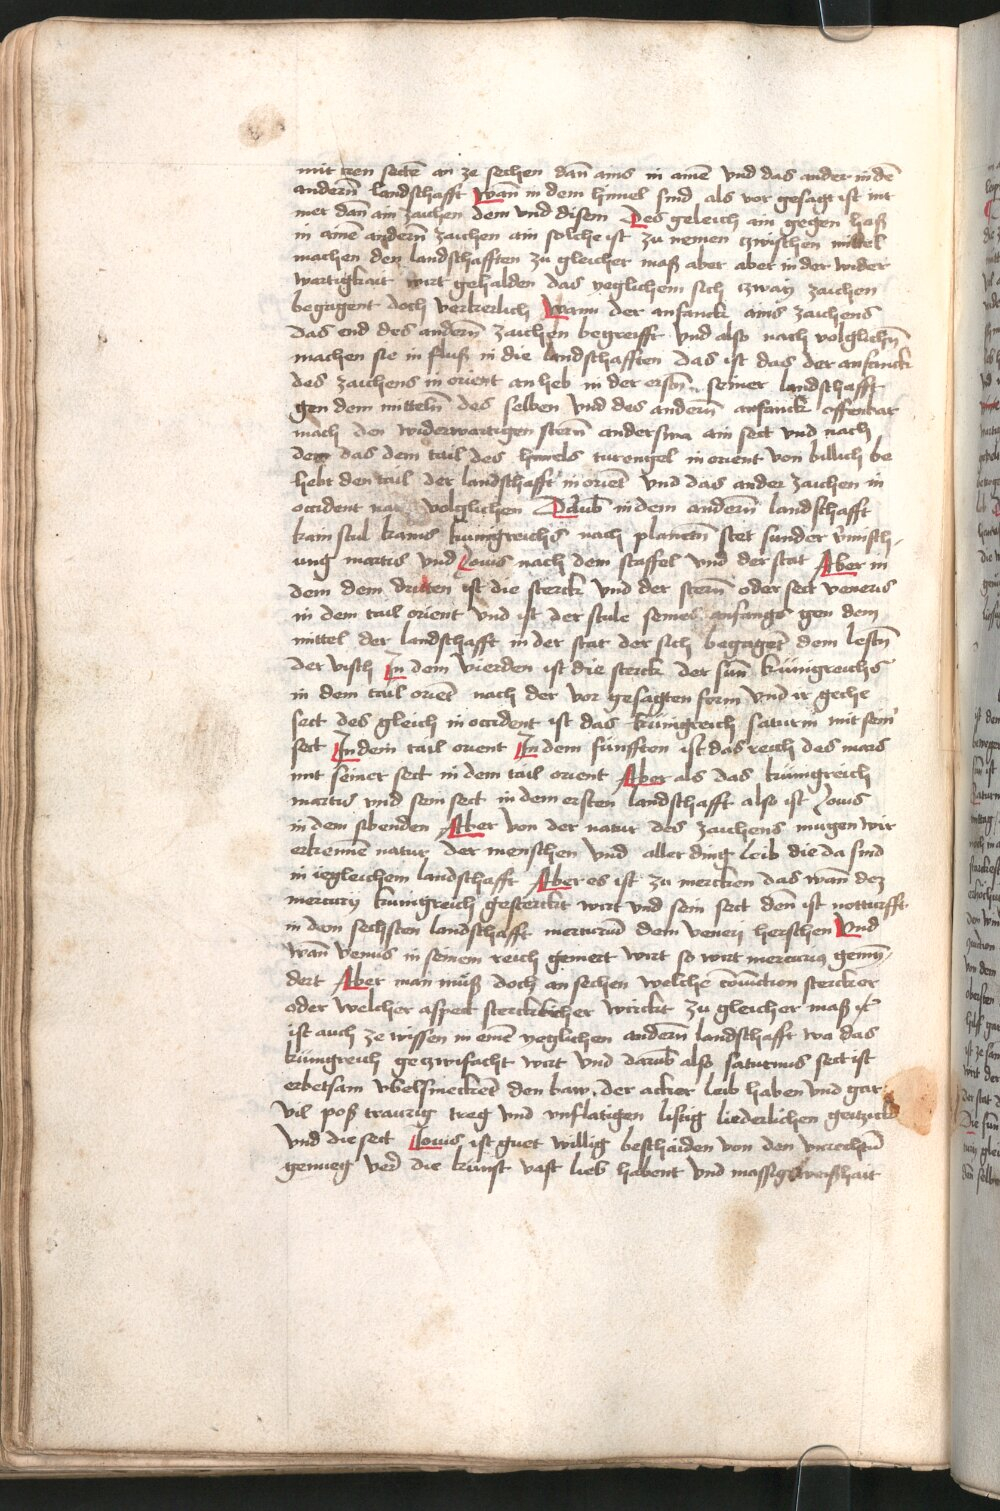 mit iren secten an ze sechen dan̄ ains in aine͂ vnd das ander in de͂
andern̄ landschafft wan̄ in dem himel sind als vor gesagt ist nit
mer dan̄ ain zaichen dem vnd disem Des geleich ain gegen haß
in aine͂ andern̄ zaichen ain solche ist zu nemen zwischen mittel
machen den landschafften zu gleicher maß aber aber in der wider
wartigkait wirt gehalden das yeglichem sich zway zaichen
begagent doch verkerlich Wann der anfanck ains zaichens
das end des andern̄ zaichen begreifft vnd also nach volglichn̄
machen sie in fluß in die landschafften das ist das der anfanck
des zaichens in orient an heb in der erstn̄ seiner landschafft
gen dem mitteln̄ des selben vnd des andern̄ anfanck offenbar
mach den widerwartigen stern̄ anderswa ain sect vnd nach
dem das dem tail des himels in orient von billich be
hebt den tail der landschafft in oriet̄ vnd das ander zaichen in
occident nach volglichen Darūb in dem andern̄ landschafft
kain stul kains kunigreichs nach planetn̄ stet sunder v̄misch
ung martis vnd Jouis nach dem staffel vnd der stat Aber in
dem dem dritten ist die sterck vnd der stern̄ oder sect veneris
in dem tail orient vnd ist der stule seines anfangs gen dem
mittel der landschafft in der stat der sich begaget̄ dem lestn̄
der visch In dem vierden ist die sterck der sun̄ kunigreichs
in dem tail oriet̄ nach der vor gesagten form vnd ir geche
sect des gleich in occident ist das kunigreich saturni mit sein̄
sect In dem tail orient In dem funfften ist das reich des mars
mit seiner sect in dem tail orient Aber als das kunigreich
martis vnd sein sect in dem ersten landschafft also ist Jouis
in dem sibenden Aber von der natur des zaichens mugen wir
erkennē natur der menschen vnd aller ding leib die da sind
in iegleichem landschafft Aber es ist zu mercken das wan̄ dez
mercurij kunigreich gesterckt wirt vnd sein sect den̄ ist notturfft
in dem sechsten landschafft mercuriū dem veneri herschen Vnd
wan̄ venus in seinem reich gemert wirt so wirt mercurius gemin̄
dert Aber man muß doch an sechen welche coniūction stercker
oder welcher aspect sterckicher wirckt zu gleicher maß it͂
ist auch ze wissen in eine͂ yeglichen andern̄ landschafft wa das
kunigreich gezwifacht wirt vnd darūb also saturnus sect ist
erbetsam vbelsmecket̄ den baw, der acker leib haben vnd gar
vil poß traurig treg vnd vnflatigen listig liederlichen geitzick
vnd die sect Jouis ist guet willig beschaiden von den vnrechtn̄
genueg ver̄ die kunst vast lieb habent vnd massige weißhait